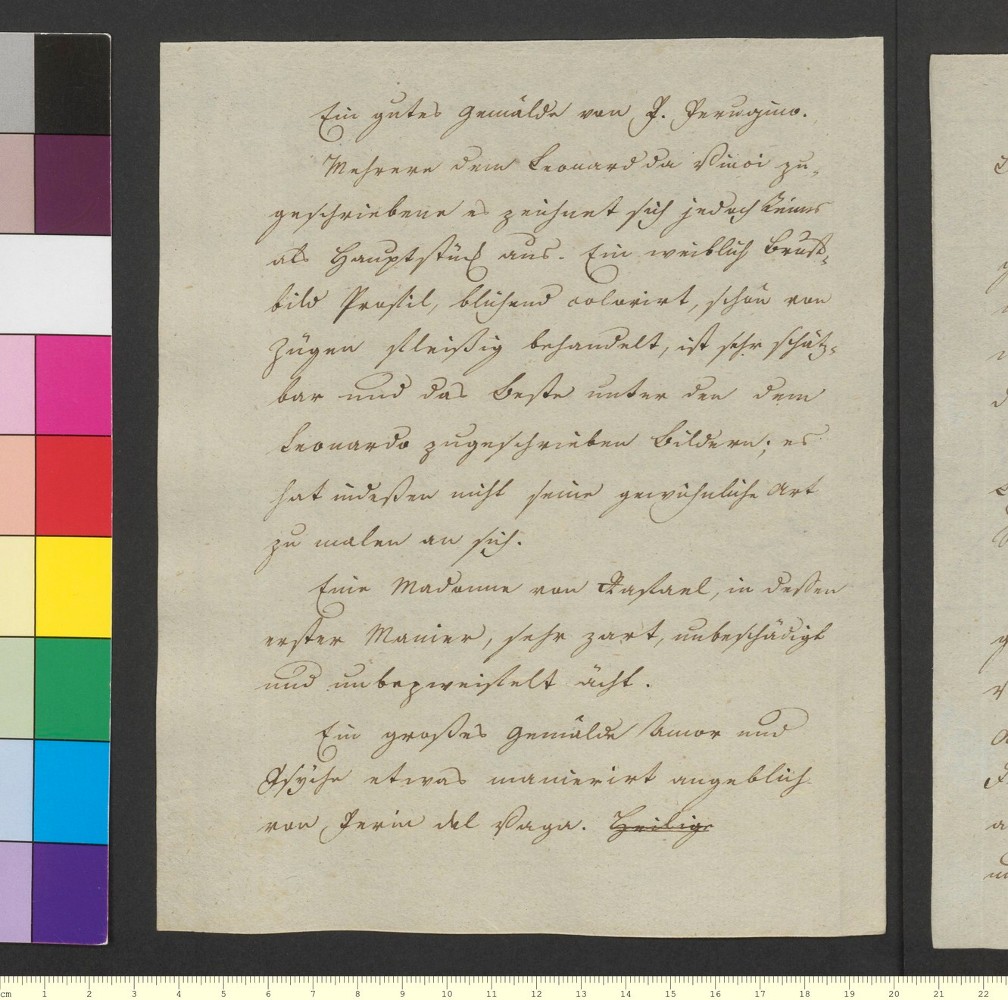 Ein gutes Gemälde von P. Perugino.
Mehrere dem Leonard da Vinci zu-
geschriebene es zeichnet sich jedoch keines
als Hauptstück aus. Ein weiblich Brust-
bild Profil, blühend colorirt, schön von
Zügen fleißig behandelt, ist sehr schätz-
bar und das Beste unter den dem
Leonardo zugeschrieben Bildern; es
hat indeßen nicht seine gewöhnliche Art
zu malen an sich.
Eine Madonne von Rafael, in deßen
erster Manier, sehr zart, unbeschädigt
und unbezweifelt ächt.
Ein großes Gemälde Amor und
Psyche etwas manierirt angeblich
von Perin del Vaga. Heilige
cm 1 2 3 4 5 6 7 8 9 10 11 12 13 14 15 16 17 18 19 20 21 22